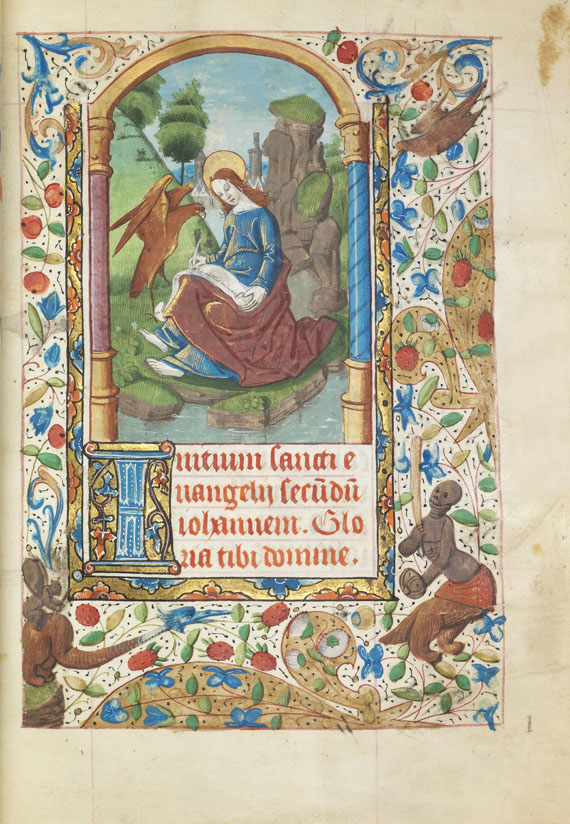 Initium sancti e
uangelij secūdū
iohannem. Glo
ria tibi domine.